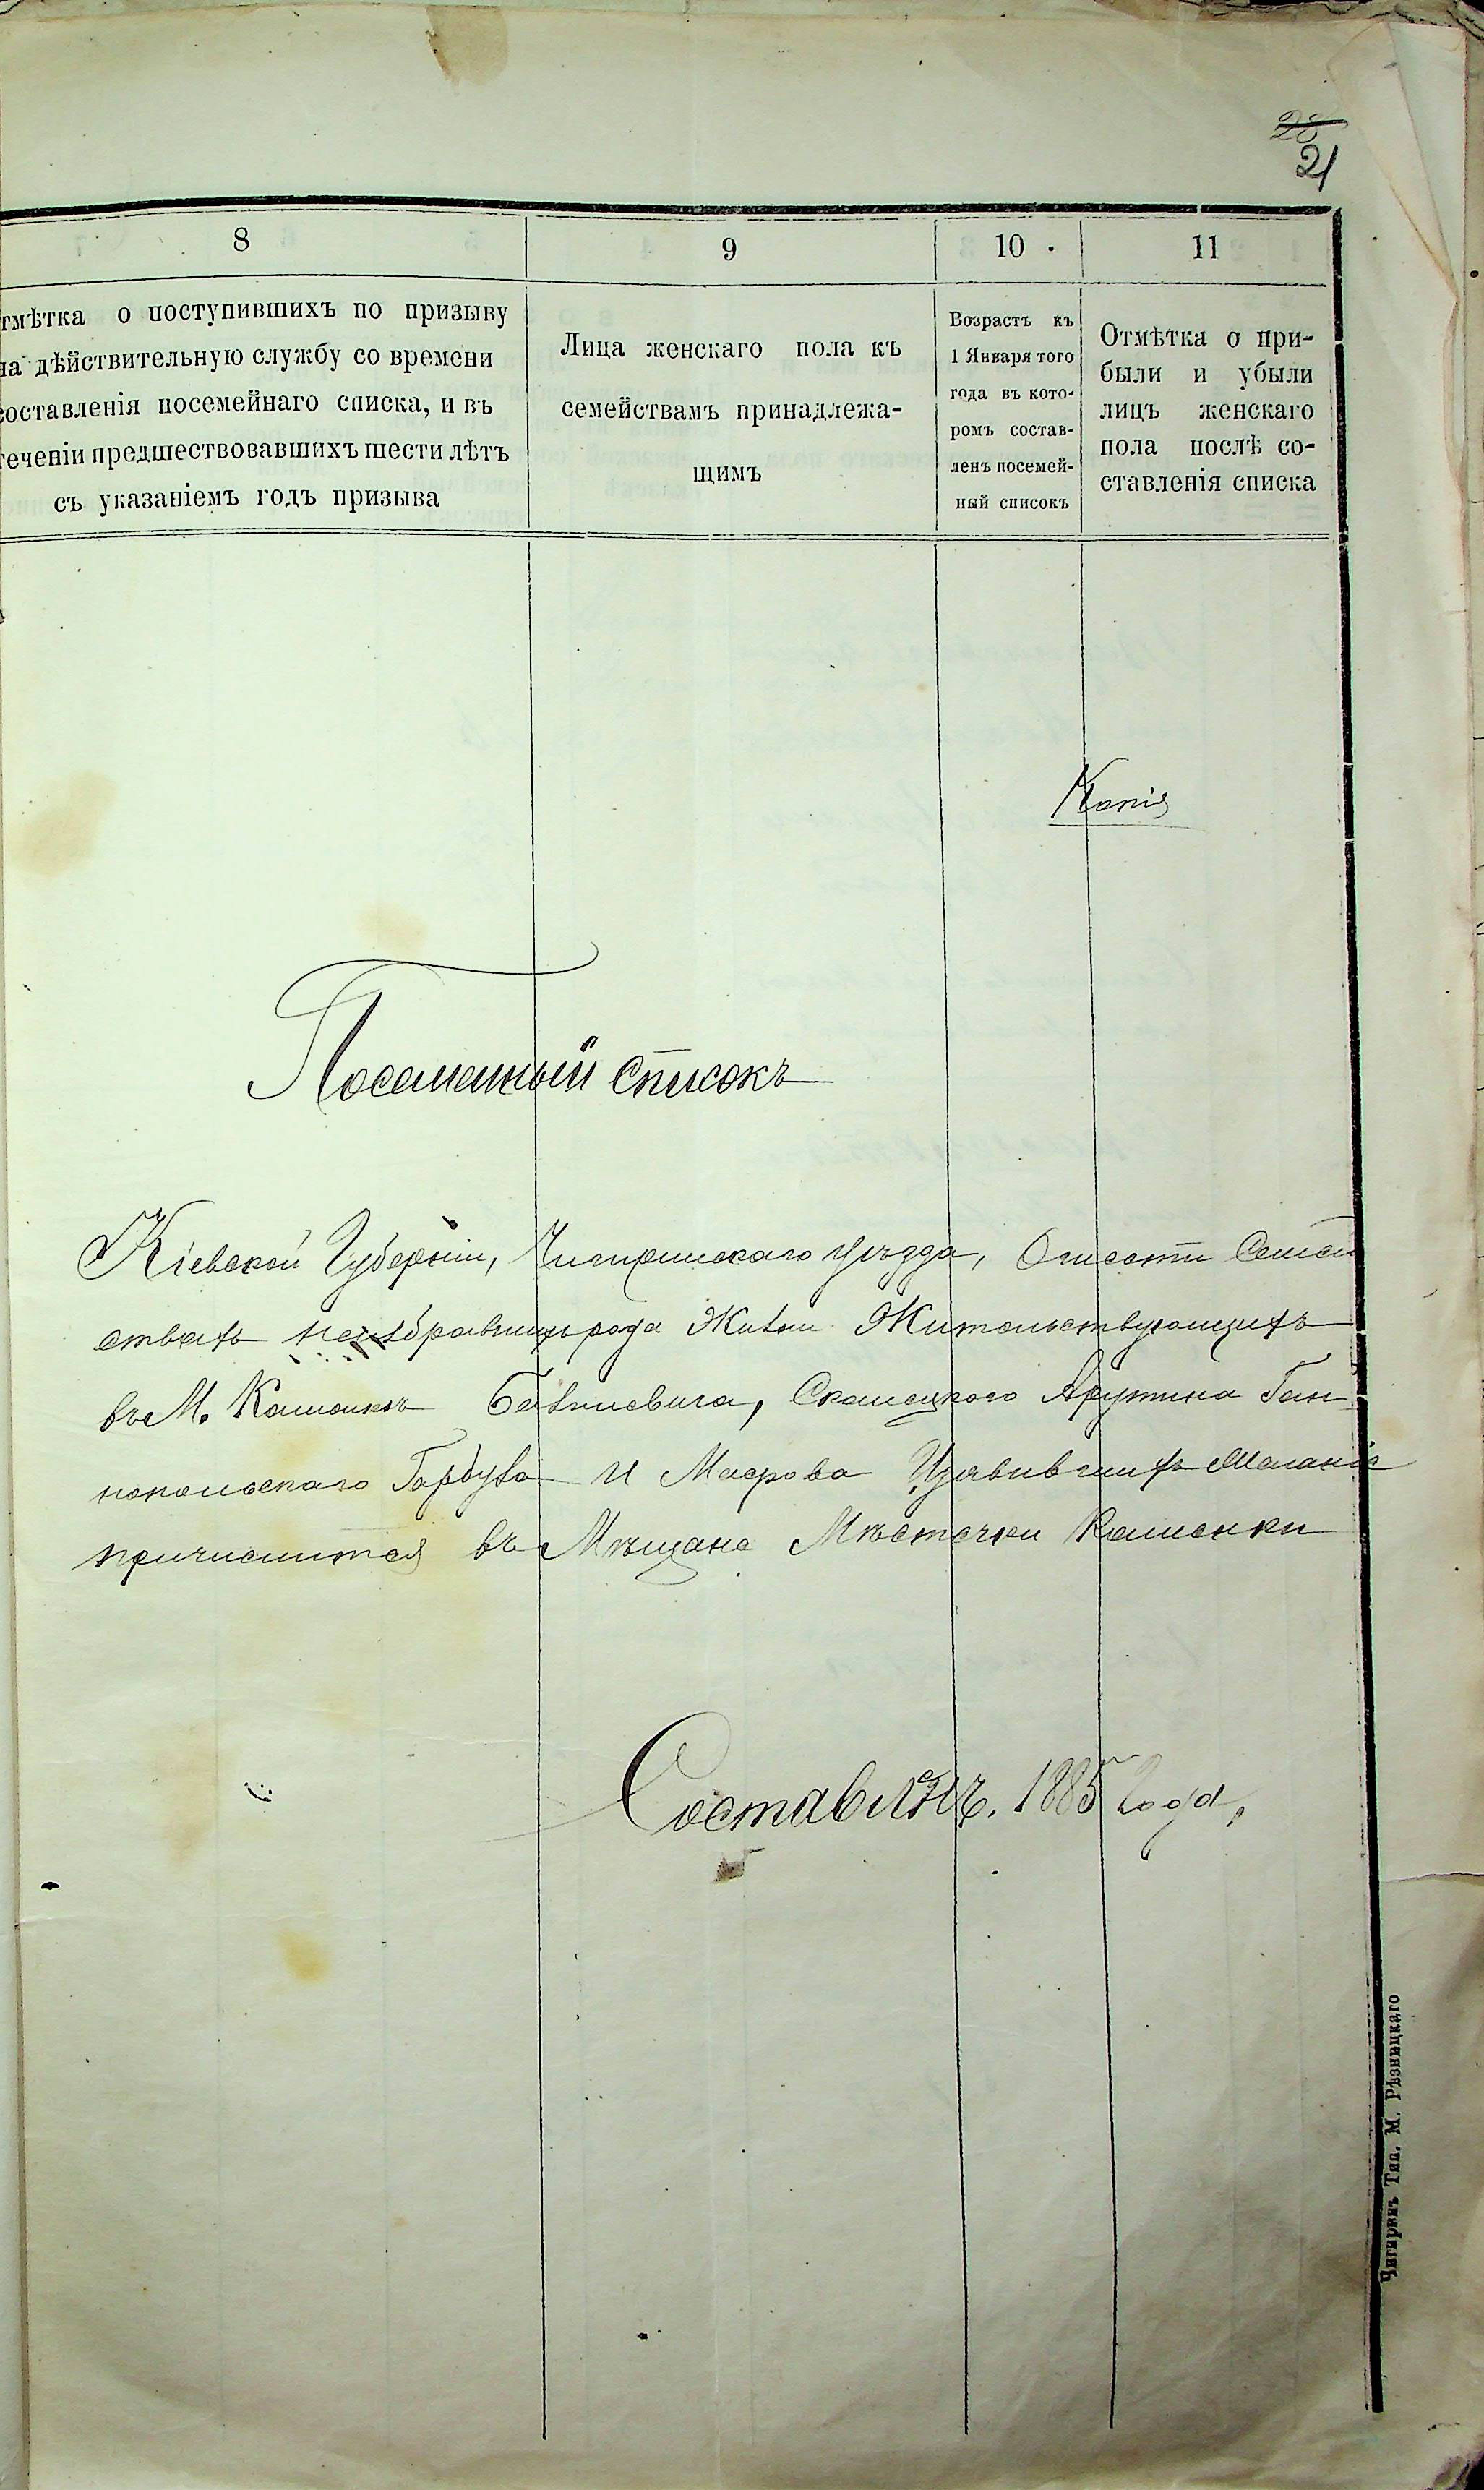 28
21
8
9
10
11
тмѣтка о поступившихъ по призыву
на дѣйствительную службу со времени
составленія посемейнаго списка, и въ
теченіи предшествовавшихъ шести лѣтъ
съ указаніемъ годъ призыва
Лица женскаго пола къ
семействамъ принадлежа-
щимъ
Возрастъ къ
1 Января того
года въ кото-
ромъ состав-
ленъ посемей-
ный списокъ
Отмѣтка о при-
были и убыли
лицъ женскаго
пола послѣ со-
ставленія списка
Копія
Посемейный списокъ
Кіевской Губерніи, Чигиринскаго уѣзда, Семей
ствахъ рода Жизни Жительствующихъ
въ М. Каменкѣ
Гарбуза и Маерова Изъявившихъ Желаніе
причислится въ Мѣщане Мѣстечки Каменки
Составленъ. 1885 Года,
Чигиринъ Тип. М. Рѣзницкаго